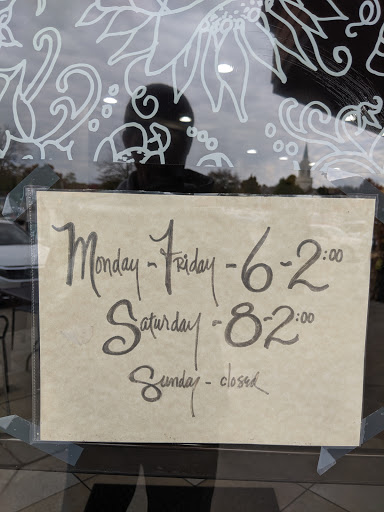 Monday - Friday - 6 - 2:00
Saturday - 8-2:00
Sunday - closed